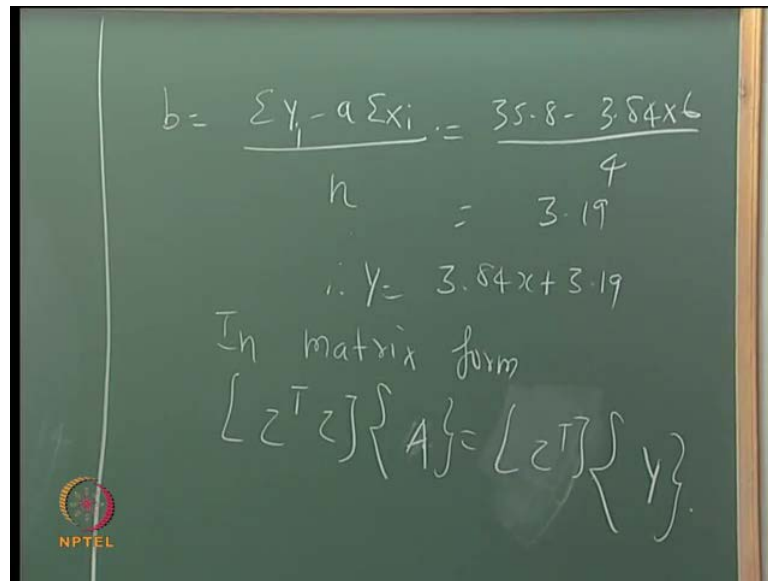 b = Σyi - a Σxi = 35.8 - 3.84x6
n 4
= 3.19
∴ y = 3.84x + 3.19
In matrix form
[z^T z]{A} = [z^T]{Y}.
NPTEL